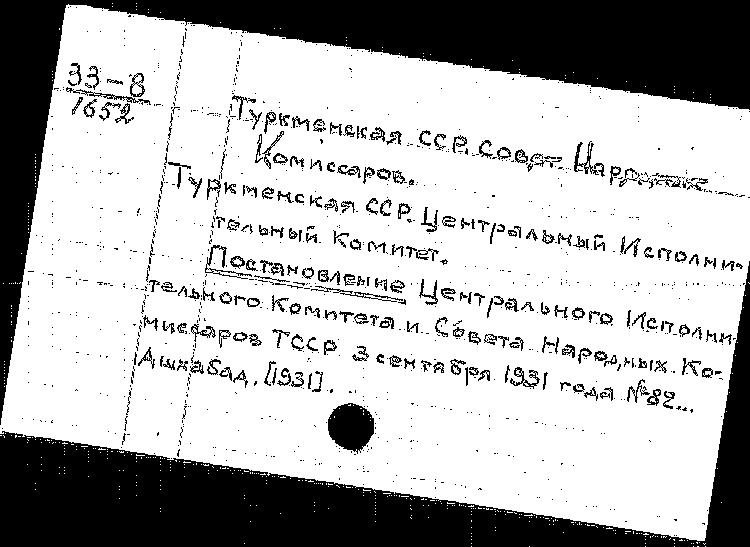 33-8
1652
Туркменская ССР. Совет Народных
Комиссаров.
Туркменская ССР. Центральный Исполни-
тельный Комитет.
Постановление Центрального Исполни
тельного Комитета и Совета Народных Ко-
миссаров ТССР 3 сентября 1931 года №82...
Ашхабад, [1931].